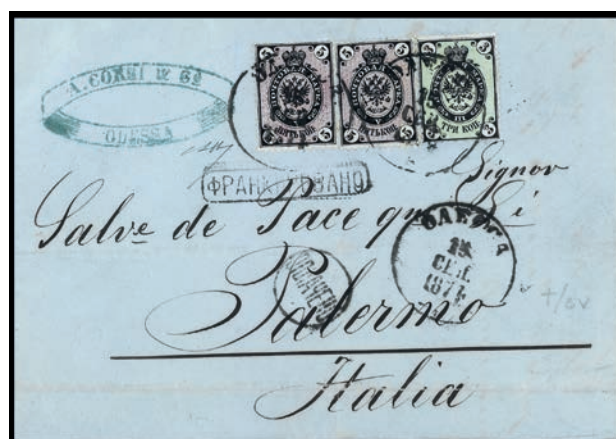 A. CORSI & Cº
ODESSA
5 5
ПЯТЬ КОП.
5 5
ПЯТЬ КОП.
3 3
ТРИ КОП.
ФРАНКИРОВАНО
Signor
Salve de Pace qm Li
ОДЕССА
15
СЕН.
187
Palermo
Italia